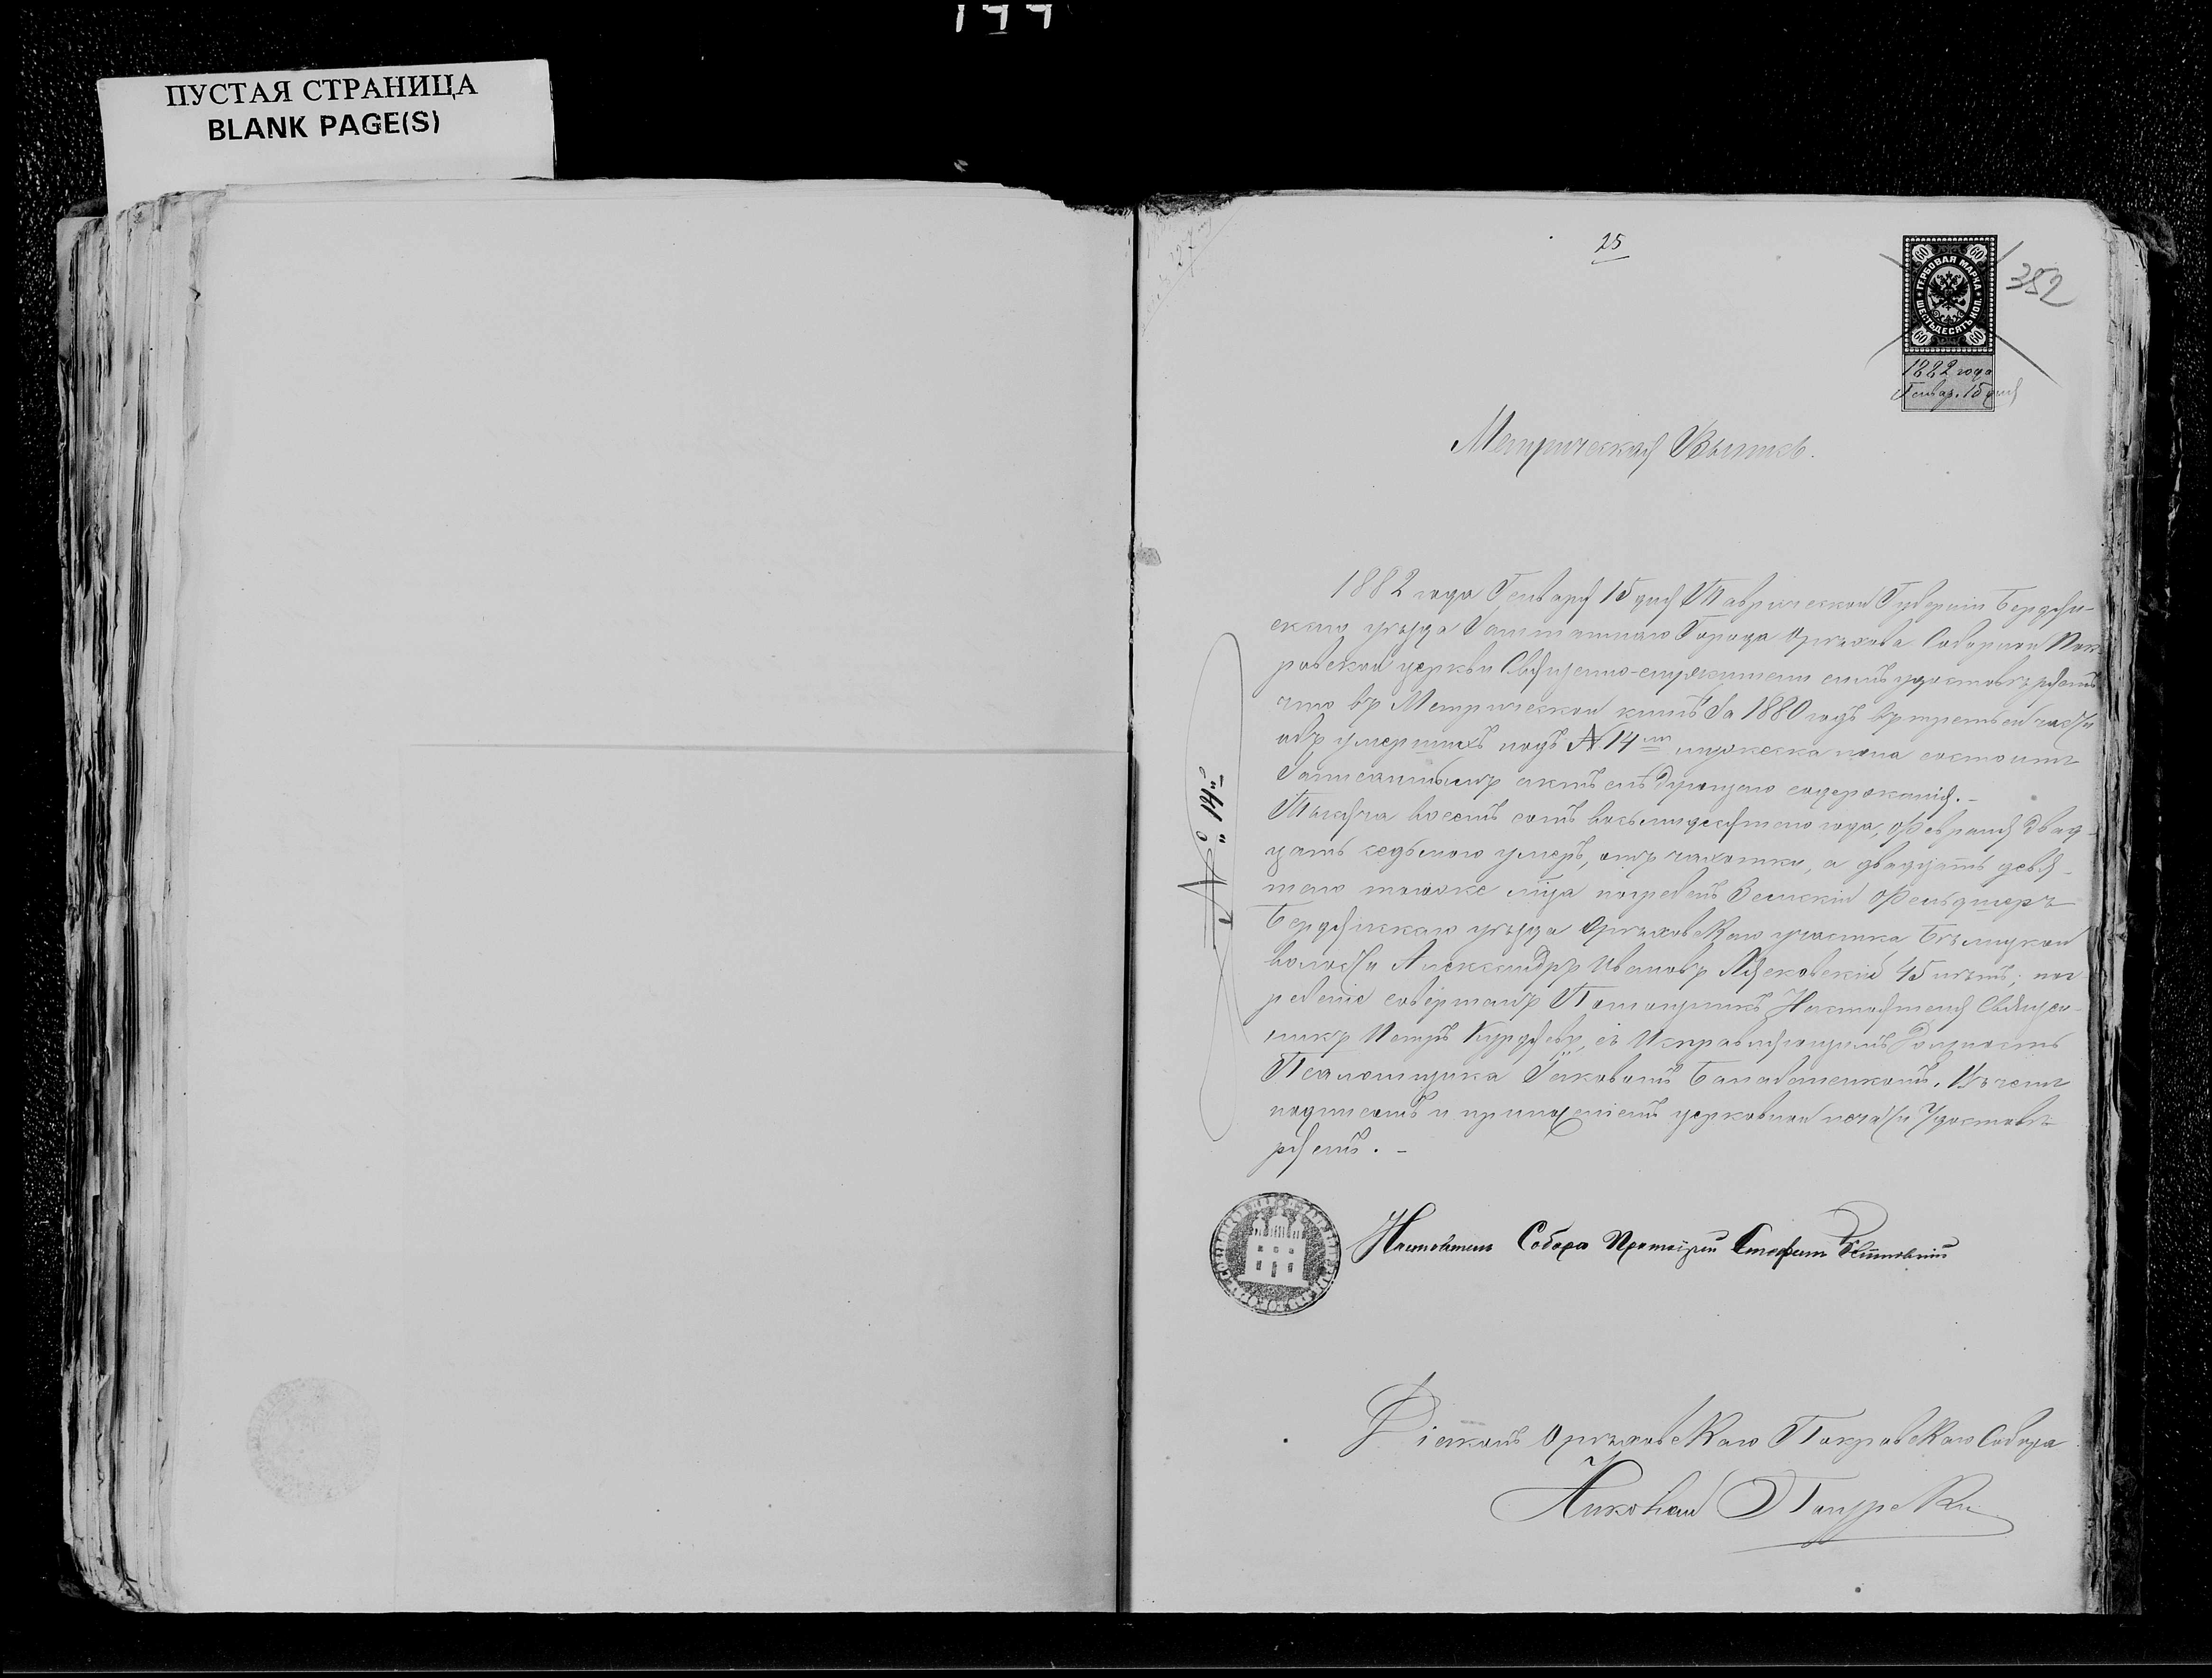 ПУСТАЯ СТРАНИЦА
BLANK PAGE(S)
25
352
60 60
ГЕРБОВАЯ МАРКА
ШЕСТЬДЕСЯТЪ КОП.
60 60
1882 года
Генвар. 15 дня
Метрическая Выпись.
1882 года Генваря 15 дня Таврической Губерніи Бердян-
скаго уѣзда Заштатнаго Города Орѣхова Соборной Пок-
ровской церкви Священно-служители симъ удостовѣряемъ
что въ Метрической книгѣ за 1880 годъ въ третьей части
объ умершихъ подъ № 14м мужеска пола состоитъ
Записаннымъ актъ слѣдующаго содержанія. –
Тысяча восемь сотъ восьмидесятаго года, Февраля Двад-
цать седьмого умеръ, отъ чахотки, а двадцать девя-
таго тогоже мца погребенъ Земскій Фельдшеръ
Бердянскаго уѣзда Орѣховскаго участка
волости Александръ Ивановъ 45 лѣтъ; пог
ребеніе совершалъ Помощникъ Настоятеля Священ-
никъ Петръ съ Исправляющимъ Должность
Псаломщика Іяковомъ Въ чемъ
подписомъ и приложеніемъ церковной печати Удостовѣ
ряемъ. –
№ "14й"
Настоятель Собора Протоіерей Стефанъ
Діяконъ Орѣховскаго Покровскаго Собора
Николай